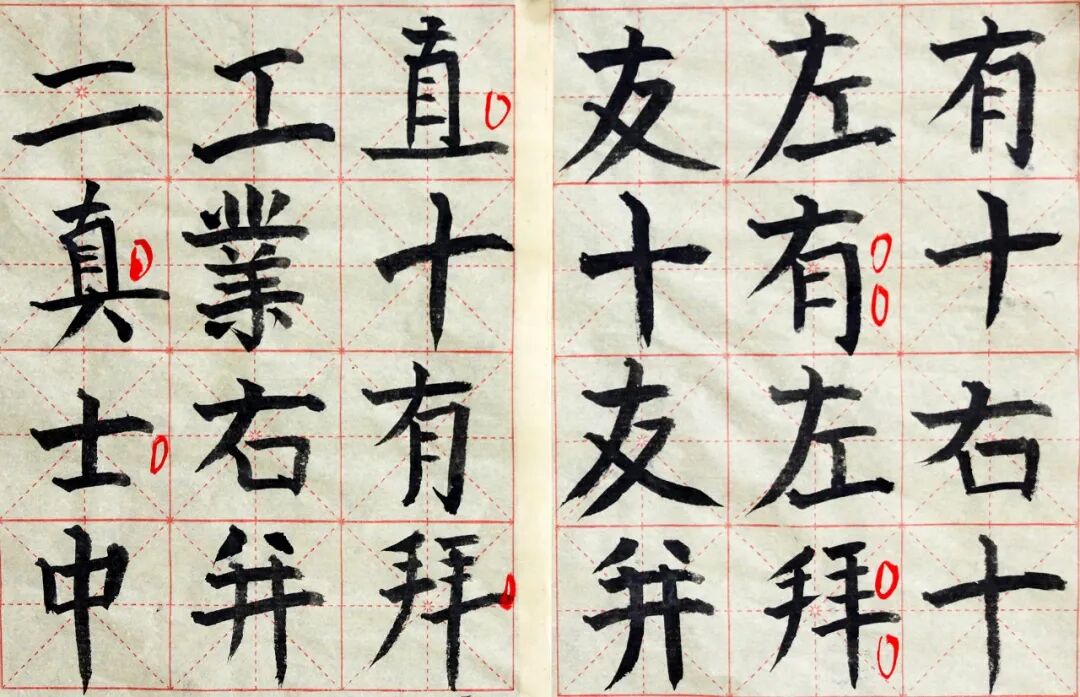 有十右十
左有左拜
友十友并
直十有拜
工業右并
二真士中